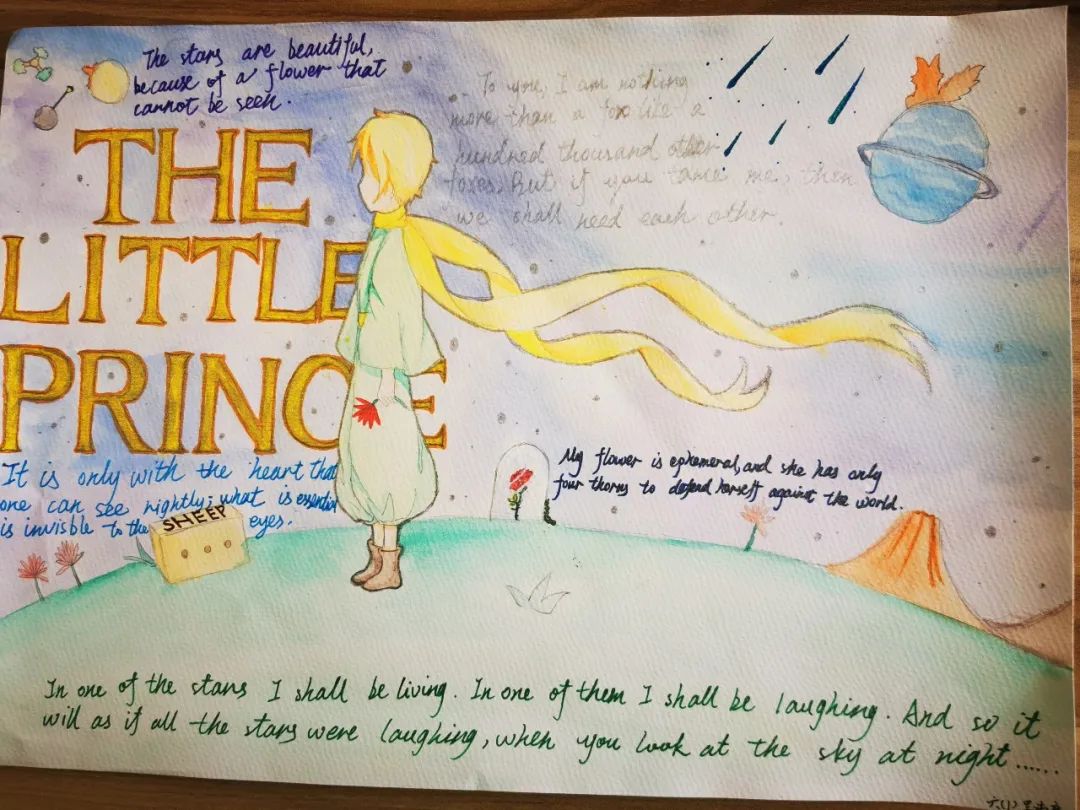 The stars are beautiful,
because of a flower that
cannot be seen.
THE
LITTLE
PRINCE
To you, I am nothing
more than a fox like a
hundred thousand other
foxes. But if you tame me, then
we shall need each other.
It is only with the heart that
one can see nightly; what is essential
is invisble to the eyes.
SHEEP
My flower is ephemeral, and she has only
four thorns to defend herself against the world.
In one of the stars I shall be living. In one of them I shall be laughing. And so it
will as if all the stars were laughing, when you look at the sky at night......